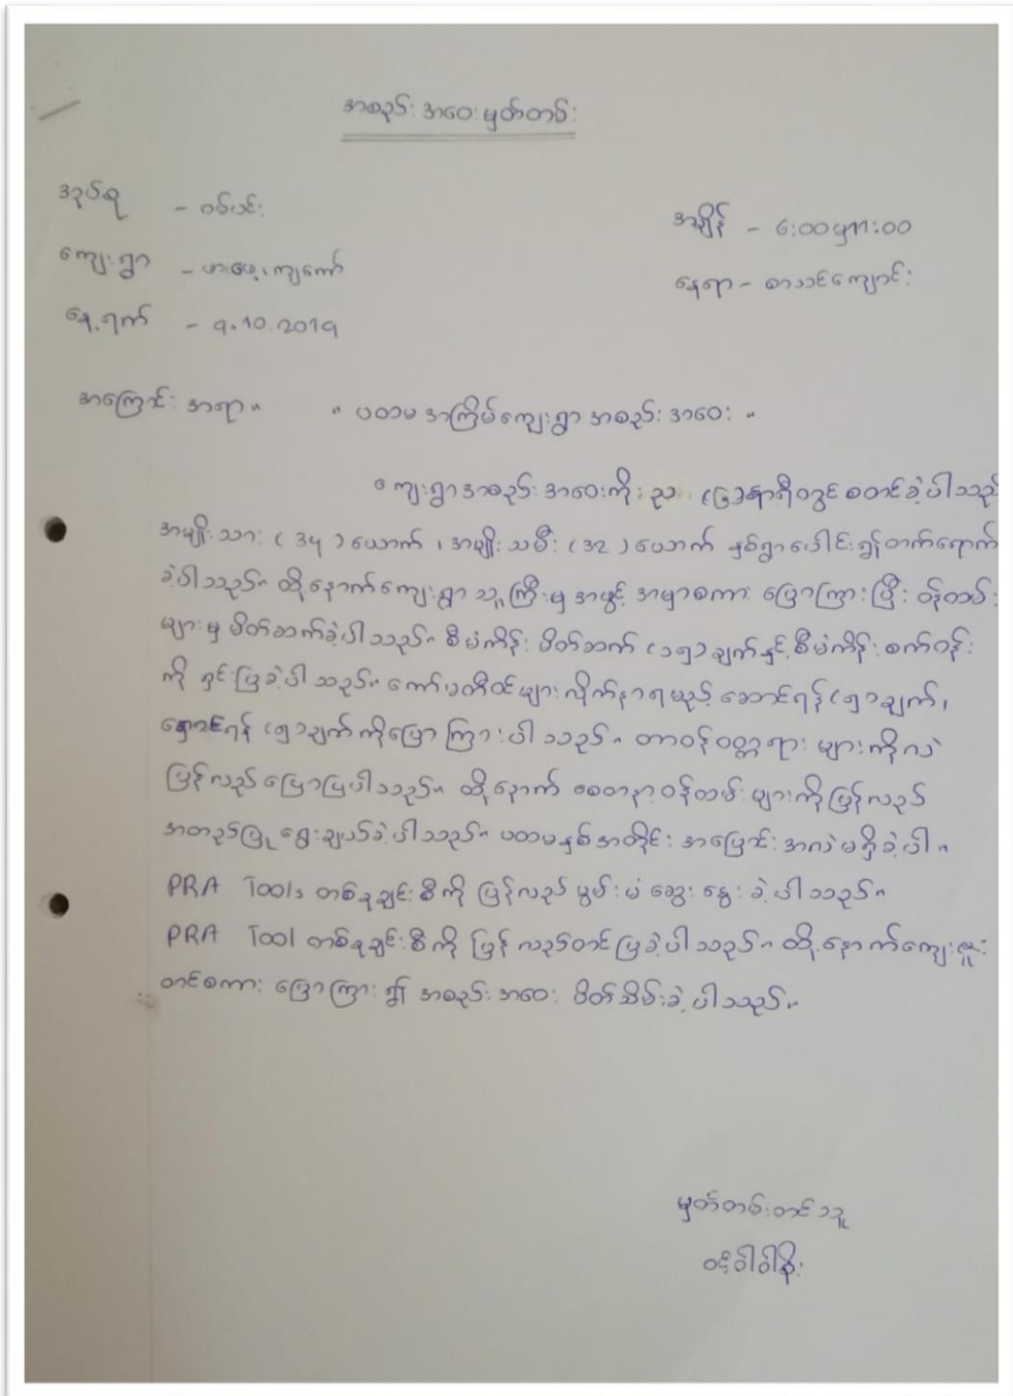 အစည်းအဝေးမှတ်တမ်း
အုပ်စု - ဝမ်းပင်း
အချိန် - ၆:၀၀မှ၇း၀၀
ကျေးရွာ -
နေရာ - စာသင်ကျောင်း
နေ့ရက် - ၅.10.2019
အကြောင်းအရာ။ " ပထမအကြိမ်ကျေးရွာအစည်းအဝေး "
ကျေးရွာအစည်းအဝေးကိုည (၆)နာရီတွင်စတင်ခဲ့ပါသည်
အမျိုးသား (၃၄)ယောက်၊အမျိုးသမီး (၃၃)ယောက် နှစ်ရွာပေါင်း၍တက်ရောက်
ခဲ့ပါသည်။ ထို့နောက်ကျေးရွာသူကြီးမှအဖွင့်အမှာစကား ပြောကြားပြီး ဝန်ထမ်း
များမှမိတ်ဆက်ခဲ့ပါသည်။ စီမံကိန်းမိတ်ဆက် (၁၅)ချက်နှင့်စီမံကိန်းစက်ဝန်း
ကို ရှင်းပြခဲ့ပါသည်။ ကော်မတီဝင်များလိုက်နာရမည့် ဆောင်ရန်(၅)ချက်၊
ရှောင်ရန် (၅)ချက်ကိုပြောကြားပါသည်။ တာဝန်ဝတ္တရား များကိုလဲ
ပြန်လည်ပြောပြပါသည်။ ထို့နောက် စေတနာ့ဝန်ထမ်းများကိုပြန်လည်
အတည်ပြုရွေးချယ်ခဲ့ပါသည်။ ပထမနှစ်အတိုင်း အပြောင်းအလဲမရှိခဲ့ပါ။
PRA Tools တစ်ခုချင်းစီကို ပြန်လည်မွမ်းမံဆွေးနွေးခဲ့ပါသည်။
PRA Tool တစ်ခုချင်းစီကို ပြန်လည်တင်ပြခဲ့ပါသည်။ ထို့နောက်ကျေးဇူး
တင်စကား ပြောကြား၍ အစည်းအဝေး ပိတ်သိမ်းခဲ့ပါသည်။
မှတ်တမ်းတင်သူ